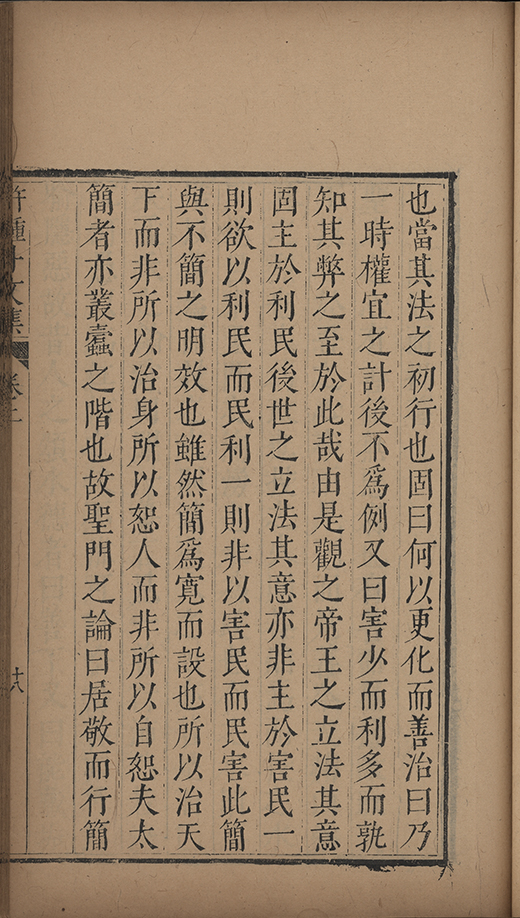 也當其法之初行也固曰何以更化而善治曰乃
一時權宜之計後不爲例又曰害少而利多而孰
知其弊之至於此哉由是觀之帝王之立法其意
固主於利民後世之立法其意亦非主於害民一
則欲以利民而民利一則非以害民而民害此簡
與不簡之明效也雖然簡爲寬而設也所以治天
下而非所以治身所以恕人而非所以自恕夫太
簡者亦叢蠹之階也故聖門之論曰居敬而行簡
許鍾斗文集 卷二
十八